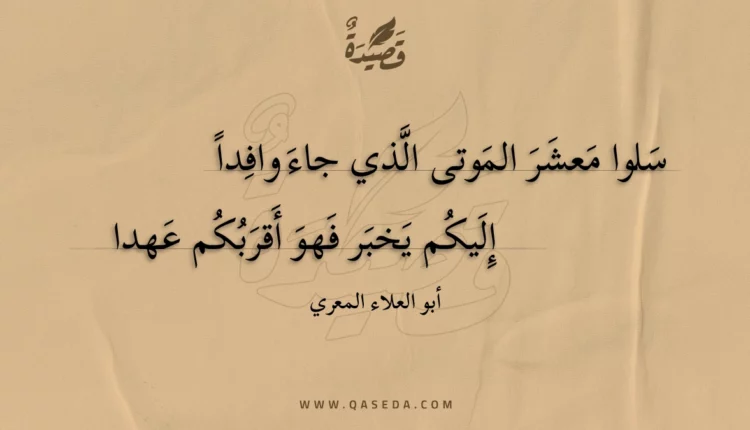 قَصِيدَةٌ
سَلوا مَعشَرَ المَوتى الَّذي جاءَ وافِداً
إِلَيكُم يَخبَر فَهوَ أَقرَبُكُم عَهدا
أبو العلاء المعري
WWW.QASEDA.COM